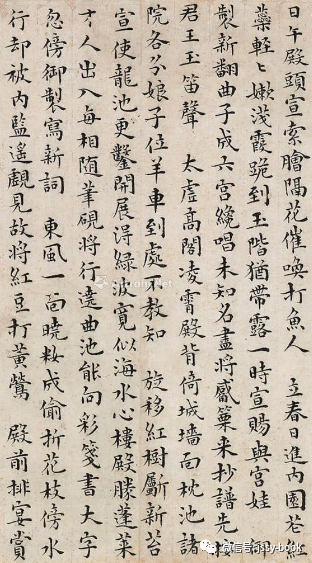 日午殿頭宣索膾隔花催喚打魚人 立春日進内園花紅
蘂輕〻嫩淺霞跪到玉階猶帶露一時宣賜與宮娃 御
製新翻曲子成六宮纔唱未知名盡將觱篥來抄譜先按
君王玉笛聲 太虛高閣凌霄殿背倚城墻面枕池諸
院各分娘子位羊車到處不教知 旋移紅樹斸新苔
宣使龍池更鑿開展得綠波寬似海水心樓殿勝蓬萊
才人出入每相隨筆硯將行遶曲池能向彩箋書大字
忽傍御製寫新詞 東風一面曉粧成偷折花枝傍水
行却被内監遙覷見故將紅豆打黃鶯 殿前排宴賞
微信号: jsty-book